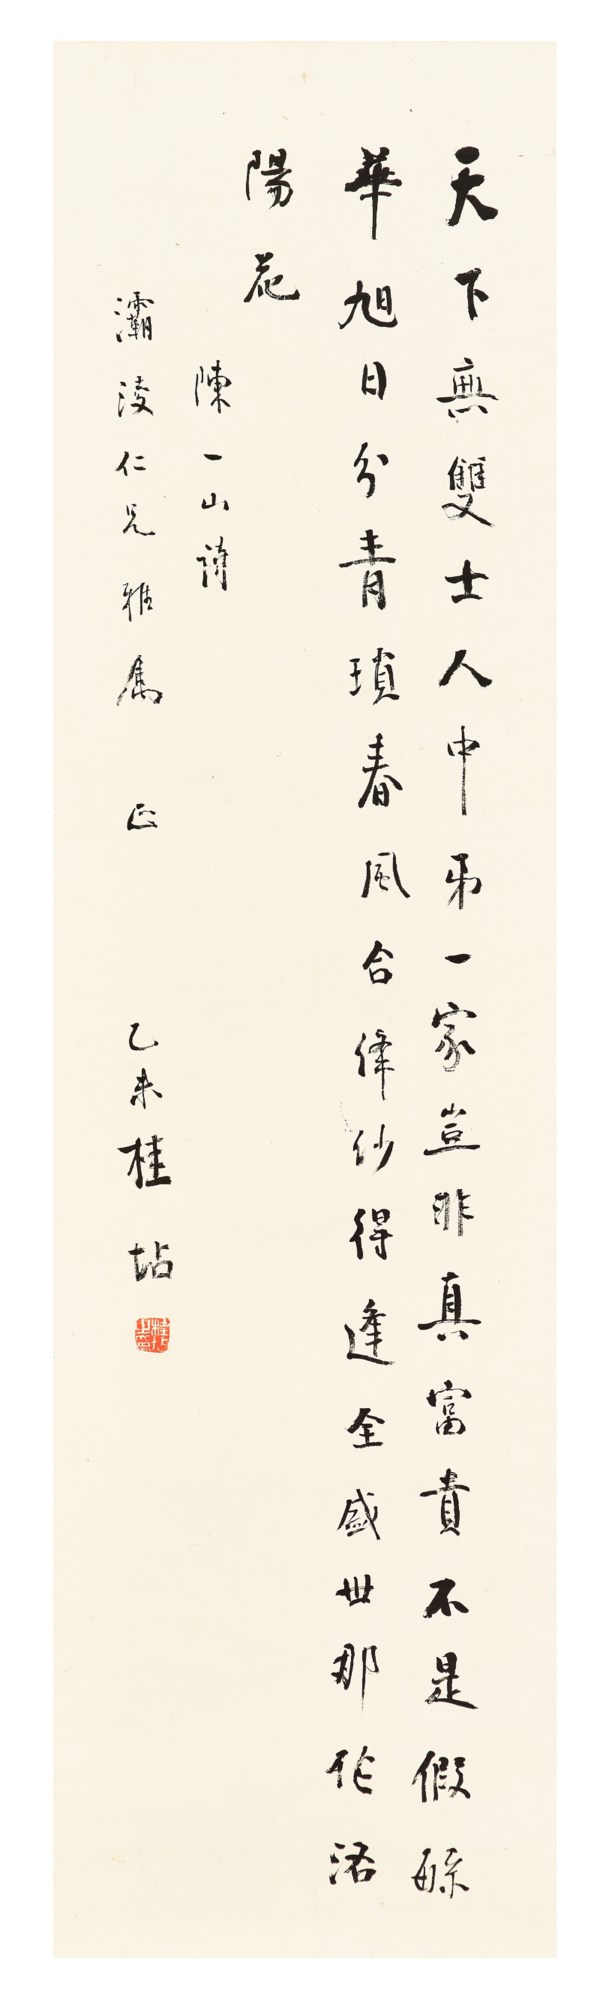 天下無雙士人中弟一家豈非真富貴不是假緐
華旭日分青瑣春風合絳紗得逢全盛世那作洛
陽花
陳一山詩
灞淩仁兄雅属 正 乙未桂坫